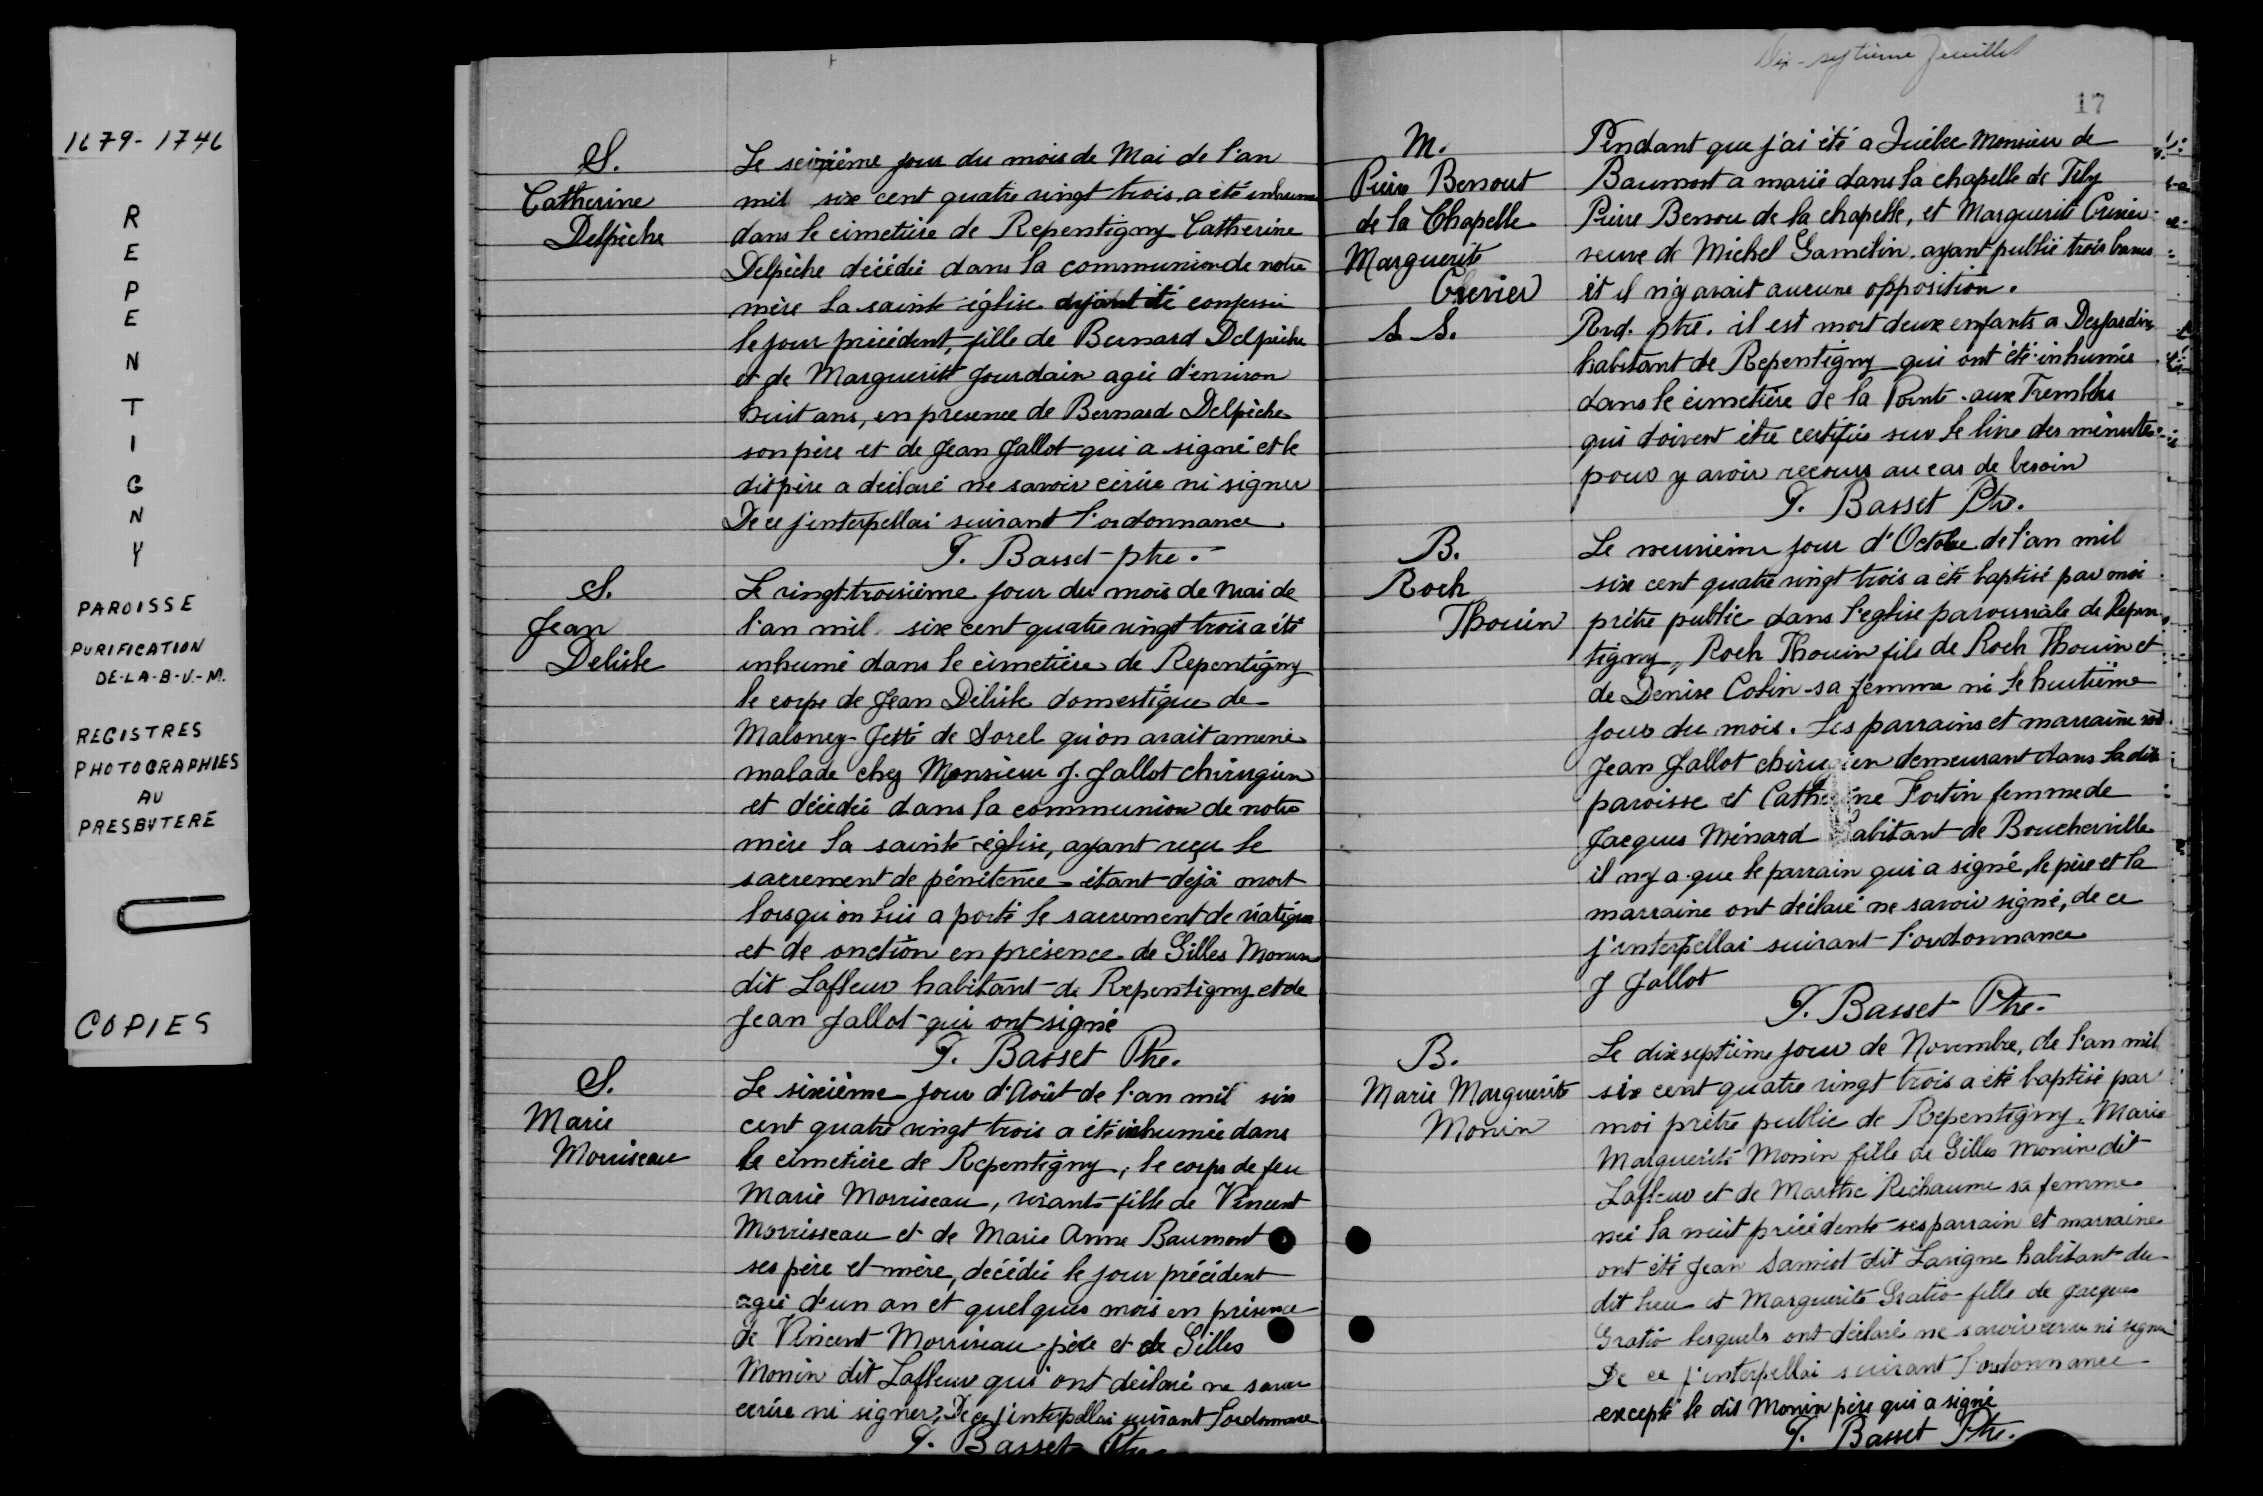 1679-1746
REPENTIGNY
PAROISSE
PURIFICATION
DE-LA-B-V.-M.
REGISTRES
PHOTOGRAPHIES
AU
PRESBYTERE
COPIES
S.
Catherine
Delpèche
Le seizième jour du mois de Mai de l'an
mil six cent quatre vingt trois, a été inhumé
dans le cimetière de Repentigny Catherine
Delpèche décédée dans la communion de notre
mère la sainte église ayant été confessée
le jour précédent, fille de Bernard Delpèche
et de Marguerite Jourdain agée d'environ
huit ans, en presence de Bernard Delpèche
son père et de Jean Jallot qui a signé et le
dit père a déclaré ne savoir écrire ni signer
De ce j'interpellai suivant l'ordonnance.
G. Basset ptre.
S.
Jean
Delisle
Le vingt troisième jour du mois de mai de
l'an mil six cent quatre vingt trois a été
inhumé dans le cimetière de Repentigny
le corps de Jean Delisle domestique de
Maloney Jetté de Sorel qu'on avait amené
malade chez Monsieur J. Jallot chirugien
et décédé dans la communion de notre
mère la sainte église, ayant reçu le
sacrement de pénitence étant déjà mort
lorsqu'on lui a porté le sacrement de viatique
et de onction en présence de Gilles Monin
dit Lafleur habitant de Repentigny et de
Jean Jallot qui ont signé
G. Basset Ptre.
S.
Marie
Morriseau
Le sixième jour d'Août de l'an mil six
cent quatre vingt trois a été inhumée dans
le cimetière de Repentigny, le corps de feu
Marie Morriseau, vivante fille de Vincent
Morrisseau et de Marie Anne Baumont
ses père et mère, décédée le jour précédent
agée d'un an et quelques mois en présence
de Vincent Morriseau père et de Gilles
Monin dit Lafleur qui ont déclaré ne savoir
écrire ni signer, De ce j'interpellai suivant l'ordonnance
G. Basset Ptre
Dix-septième feuillet
17
M.
Pierre Bersout
de la Chapelle
Marguerite
Crevier
Pendant que j'ai été a Québec Monsieur de
Baumont a marié dans la chapelle de Tily
Pierre Bersou de la chapelle, et Marguerite Crevier
veuve de Michel Gamelin. ayant publié trois bancs
et il n'y avait aucune opposition.
S S.
Rvd. ptre. il est mort deux enfants a Desjardins
habitant de Repentigny qui ont été inhumés
dans le cimetière de la Pointe-aux Trembles
qui doivent être certifiés sur le livre des minutes
pour y avoir recours au cas de besoin
G. Basset Ptr.
B.
Roch
Thouin
Le neuvième jour d'Octobre de l'an mil
six cent quatre vingt trois a été baptisé par moi
prêtre public dans l'eglise paroissiale de Repen-
tigny, Roch Thouin fils de Roch Thouin et
de Denise Colin sa femme né le huitième
jour du mois. Les parrains et marraine sont
Jean Jallot chirugien demeurant dans la dite
paroisse et Catherine Fortin femme de
Jacques Ménard habitant de Boucherville
il n'y a que le parrain qui a signé, le père et la
marraine ont déclaré ne savoir signé, de ce
j'interpellai suivant l'ordonnance
J Jallot
G. Basset Ptre.
B.
Marie Marguerite
Monin
Le dix septième jour de Novembre, de l'an mil
six cent quatre vingt trois a été baptisé par
moi prêtre public de Repentigny. Marie
Marguerite Monin fille de Gilles Monin dit
Lafleur et de Marthe Richaume sa femme
née la nuit précédente ses parrain et marraine
ont été Jean Samiot dit Lavigne habitant du
dit lieu et Marguerite Gratio fille de Jacques
Gratio lesquels ont déclaré ne savoir écrire ni signer
De ce j'interpellai suivant l'ordonnance
excepté le dit Monin père qui a signé
G. Basset Ptr.